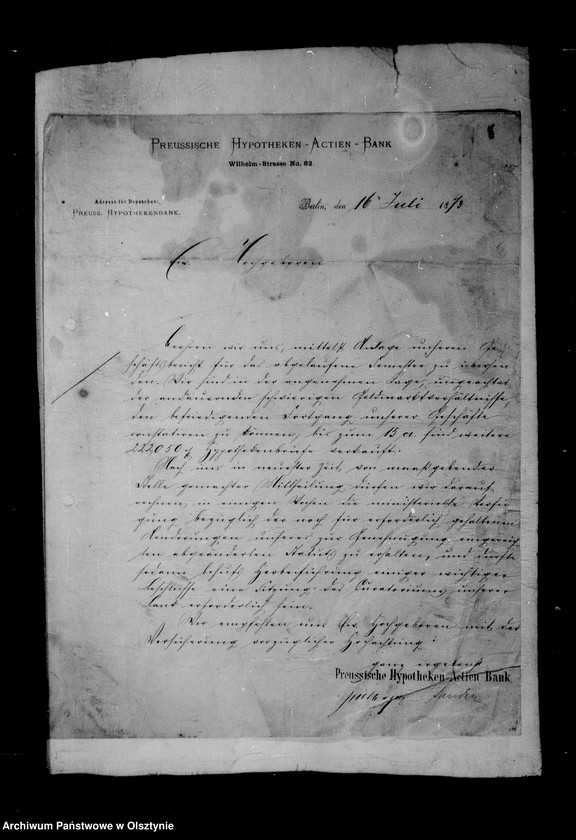 PREUSSISCHE HYPOTHEKEN-ACTIEN-BANK
Wilhelm-Strasse No. 62.
Adresse für Depeschen:
PREUSS. HYPOTHEKENBANK.
Berlin, den 16 Juli 1873
Ew. Hochgeboren
beehren wir uns, mittelst Anlage unseren Ge-
schäftsbericht für das abgelaufene Semester zu übersen-
den. Wir sind in der angenehmen Lage, ungeachtet
der andauernden schwierigen Geldmarktverhältnisse,
den befriedigenden Fortgang unserer Geschäfte
constatiren zu können, bis zum 15 cr. sind weitere
222,050 Hypothekenbriefe verkauft.
Nach uns in neuester Zeit von maaßgebender
Stelle gemachter Mittheilung dürfen wir darauf
rechnen, in einigen Wochen die ministerielle Verfü-
gung bezüglich der noch für erforderlich gehaltenen
Aenderungen unseres zur Genehmigung eingereich-
ten abgeänderten Statuts zu erhalten, und dürfte
sodann behufs Herbeiführung einiger wichtiger
Beschlüsse eine Sitzung des Curatoriums unserer
Bank erforderlich sein.
Wir empfehlen uns Ew. Hochgeboren mit der
Versicherung vorzüglicher Hochachtung!
ganz ergebenst
Preussische Hypotheken Actien Bank
Sanden
Archiwum Państwowe w Olsztynie